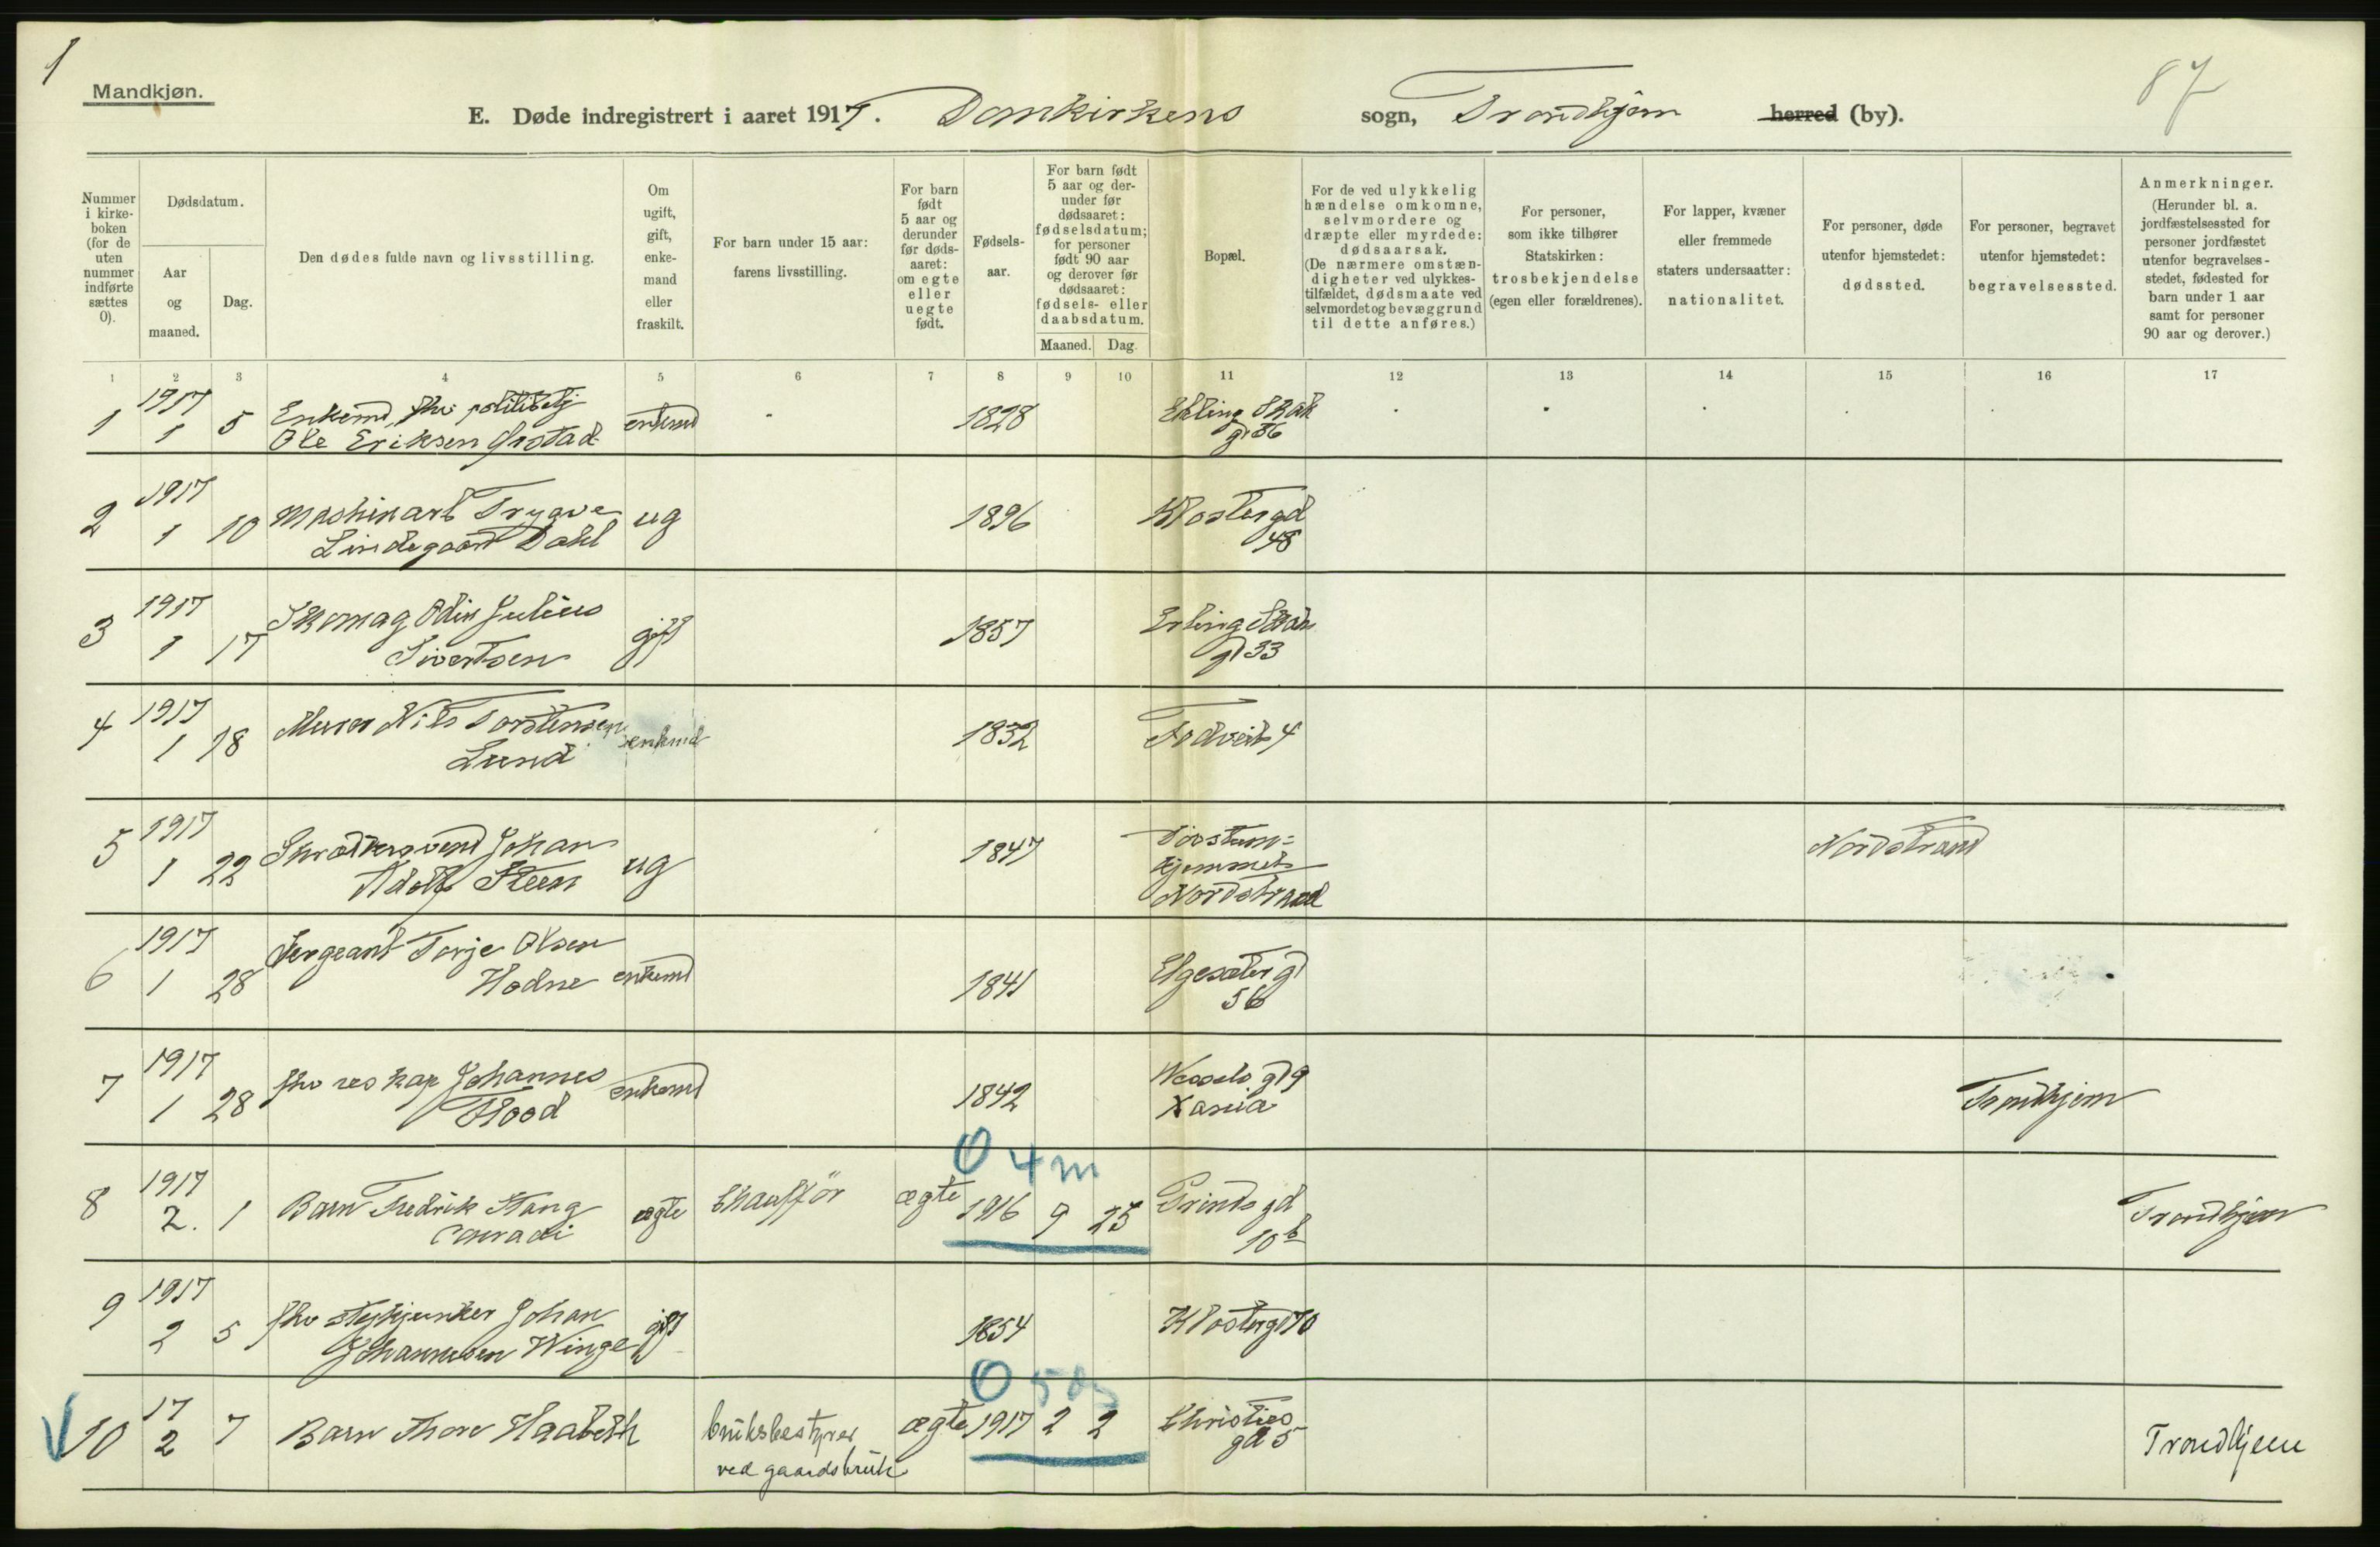 1
Mandkjøn.
87
E. Døde indregistrert i aaret 1917. Domkirkens sogn, Trondhjem herred (by).
Nummer i kirkeboken (for de uten nummer indførte sættes 0).
Dødsdatum.
Aar og maaned.
Dag.
Den dødes fulde navn og livsstilling.
Om ugift, gift, enkemand eller fraskilt.
For barn under 15 aar: farens livsstilling.
For barn født 5 aar og derunder før dødsaaret: om egte eller uegte født.
Fødselsaar.
For barn født 5 aar og derunder før dødsaaret: fødselsdatum; for personer født 90 aar og derover før dødsaaret: fødsels- eller daabsdatum.
Maaned. Dag.
Bopæl.
For de ved ulykkelig hændelse omkomne, selvmordere og dræpte eller myrdede: dødsaarsak. (De nærmere omstændigheter ved ulykkestilfældet, dødsmaate ved selvmordet og bevæggrund til dette anføres.)
For personer, som ikke tilhører Statskirken: trosbekjendelse (egen eller forældrenes).
For lapper, kvæner eller fremmede staters undersaatter: nationalitet.
For personer, døde utenfor hjemstedet: dødssted.
For personer, begravet utenfor hjemstedet: begravelsessted.
Anmerkninger. (Herunder bl. a. jordfæstelsessted for personer jordfæstet utenfor begravelsesstedet, fødested for barn under 1 aar samt for personer 90 aar og derover.)
1 2 3 4 5 6 7 8 9 10 11 12 13 14 15 16 17
1 1917 1 5 Enkemd, fhv politibetj Ole Eriksen enkemd 1828 Erling Skak gd 36
2 1917 1 10 Maskinarb Trygve Lindegaard Dahl ug 1896 Klostergd 48
3 1917 1 17 Skomag Odin Julius Sivertsen gift 1857 Erling Skak gd 33
4 1917 1 18 Murer Nils Torstensen Lund enkmd 1832 4
5 1917 1 22 Skræddersvend Johan Adolf Steen ug 1847 hjemmet Nordstrand Nordstrand
6 1917 1 28 Sergeant Torje Olsen Hodne enkemd 1841 Elgesæter gd 56
7 1917 1 28 fhv res kap Johannes Flood enkemd 1842 Wessels gd 9 Xania Trondhjem
0 4 m
8 1917 2. 1 Barn Fredrik Stang Conradi ægte Chauffør ægte 1916 9 25 Prinds gd 10 b Trondhjem
9 1917 2 5 fhv Johan Johannesen Winge gift 1854 Klostergd 70
0 5 d
V 10 17 2 7 Barn Thore Haabeth bruksbestyrer ved gaardsbruk ægte 1917 2 2 Christies gd 5 Trondhjem